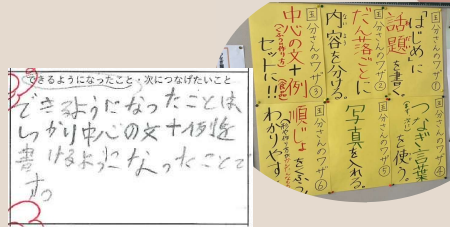 できるようになったこと・次につなげたいこと
できるようになったことは
しっかり中心の文＋例を
書けるようになったことで
す。
国分さんのワザ①
「はじめ」に
話題を書く。
国分さんのワザ②
だん落ごとに
内容を分ける。
国分さんのワザ③
中心の文＋例
セットに!!
国分さんのワザ④
つなぎ言葉
を使う。
国分さんのワザ⑤
写真を入れる。
国分さんのワザ⑥
順じょ
わかりやすく